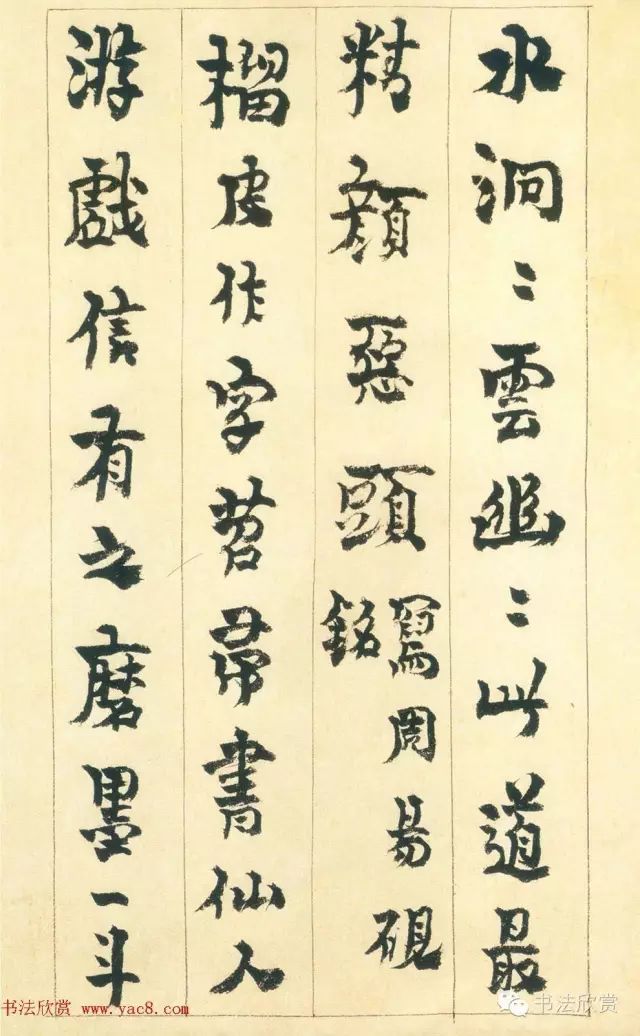 水洞〻雲幽〻此道最
精顏惡頭
寫周易硯
銘
榴皮作字苕帚書仙人
游戲信有之磨墨一斗
书法欣赏 www.yac8.com
书法欣赏